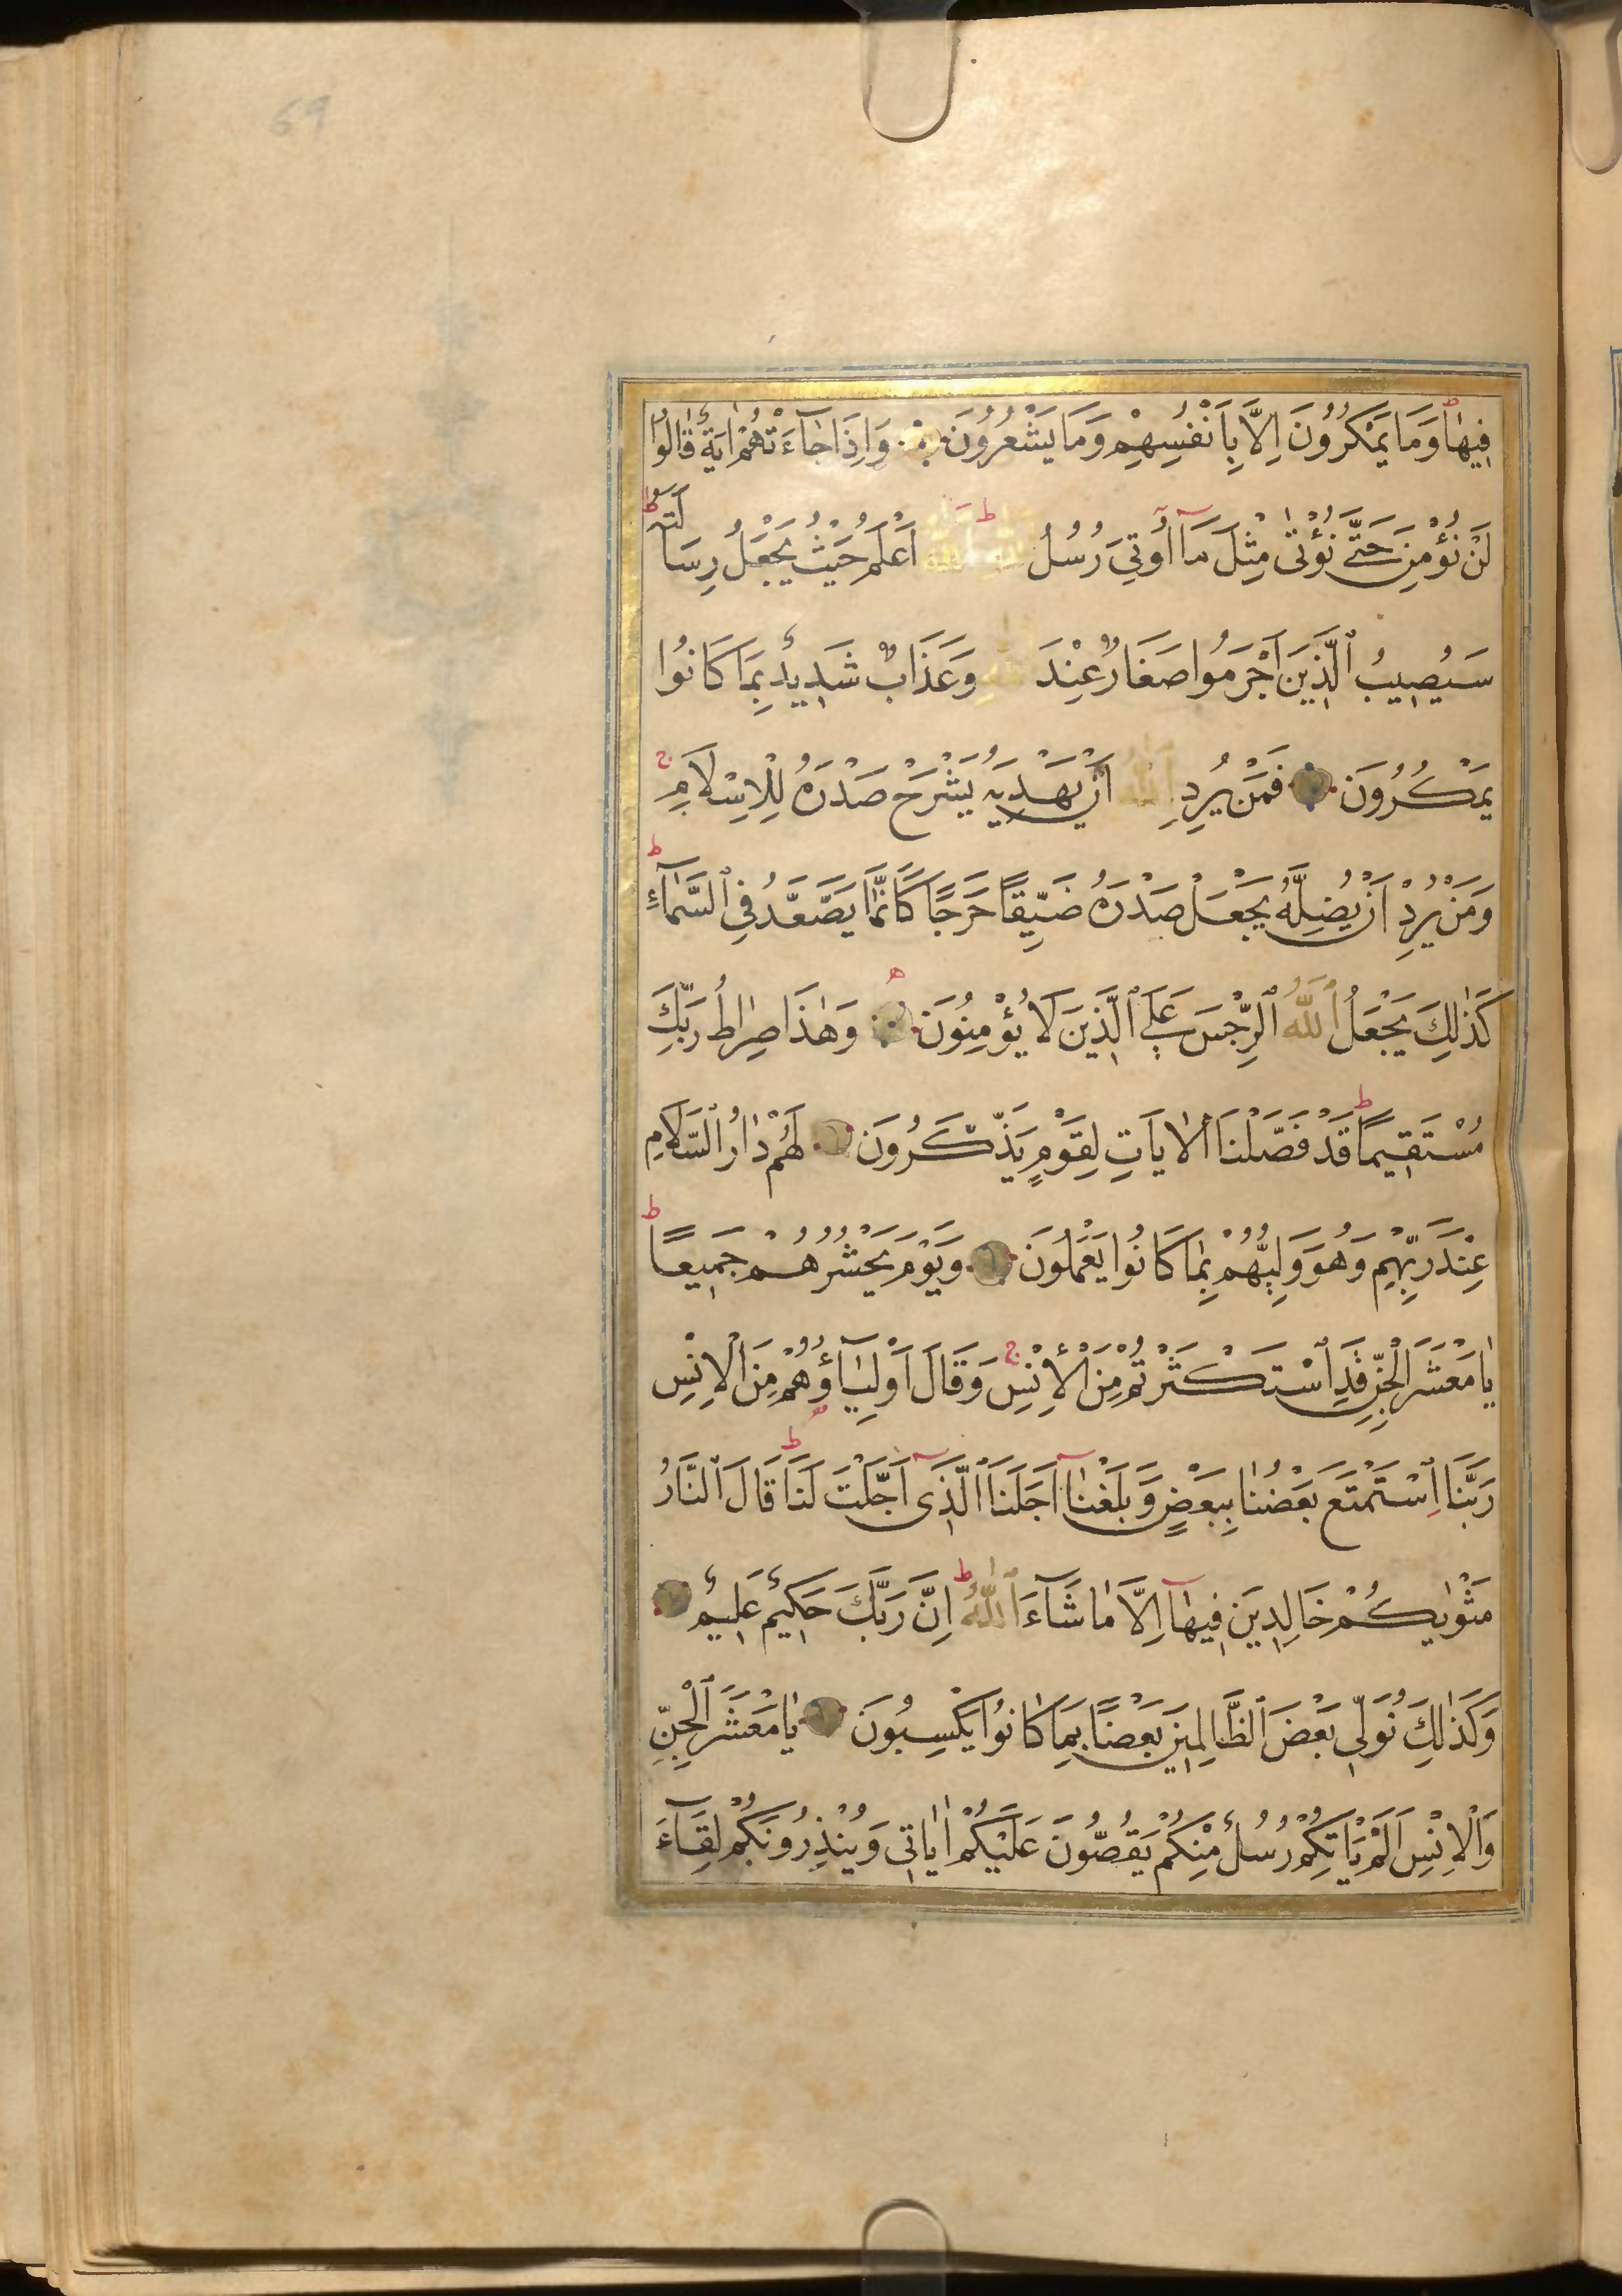 69
فِيهَا وَمَا يَمْكُرُونَ اِلَّا بِاَنْفُسِهِمْ وَمَا يَشْعُرُونَ وَاِذَا جَآءَتْهُمْ اٰيَةٌ قَالُوا
لَنْ نُؤْمِنَ حَتّٰى نُؤْتٰى مِثْلَ مَآ اُو۫تِىَ رُسُلُ اللّٰهِ اَللّٰهُ اَعْلَمُ حَيْثُ يَجْعَلُ رِسَالَتَهُ
سَيُصِيبُ الَّذِينَ اَجْرَمُوا صَغَارٌ عِنْدَ اللّٰهِ وَعَذَابٌ شَدِيدٌ بِمَا كَانُوا
يَمْكُرُونَ فَمَنْ يُرِدِ اللّٰهُ اَنْ يَهْدِيَهُ يَشْرَحْ صَدْرَهُ لِلْاِسْلَامِ
وَمَنْ يُرِدْ اَنْ يُضِلَّهُ يَجْعَلْ صَدْرَهُ ضَيِّقًا حَرَجًا كَاَنَّمَا يَصَّعَّدُ فِى السَّمَآءِ
كَذٰلِكَ يَجْعَلُ اللّٰهُ الرِّجْسَ عَلَى الَّذِينَ لَا يُؤْمِنُونَ وَهٰذَا صِرَاطُ رَبِّكَ
مُسْتَقِيمًا قَدْ فَصَّلْنَا الْاٰيَاتِ لِقَوْمٍ يَذَّكَّرُونَ لَهُمْ دَارُ السَّلَامِ
عِنْدَ رَبِّهِمْ وَهُوَ وَلِيُّهُمْ بِمَا كَانُوا يَعْمَلُونَ وَيَوْمَ يَحْشُرُهُمْ جَمِيعًا
يَا مَعْشَرَ الْجِنِّ قَدِ اسْتَكْثَرْتُمْ مِنَ الْاِنْسِ وَقَالَ اَوْلِيَآؤُهُمْ مِنَ الْاِنْسِ
رَبَّنَا اسْتَمْتَعَ بَعْضُنَا بِبَعْضٍ وَبَلَغْنَآ اَجَلَنَا الَّذِىٓ اَجَّلْتَ لَنَا قَالَ النَّارُ
مَثْوٰيكُمْ خَالِدِينَ فِيهَآ اِلَّا مَا شَآءَ اللّٰهُ اِنَّ رَبَّكَ حَكِيمٌ عَلِيمٌ
وَكَذٰلِكَ نُوَلِّى بَعْضَ الظَّالِمِينَ بَعْضًا بِمَا كَانُوا يَكْسِبُونَ يَا مَعْشَرَ الْجِنِّ
وَالْاِنْسِ اَلَمْ يَاْتِكُمْ رُسُلٌ مِنْكُمْ يَقُصُّونَ عَلَيْكُمْ اٰيَاتِى وَيُنْذِرُونَكُمْ لِقَآءَ